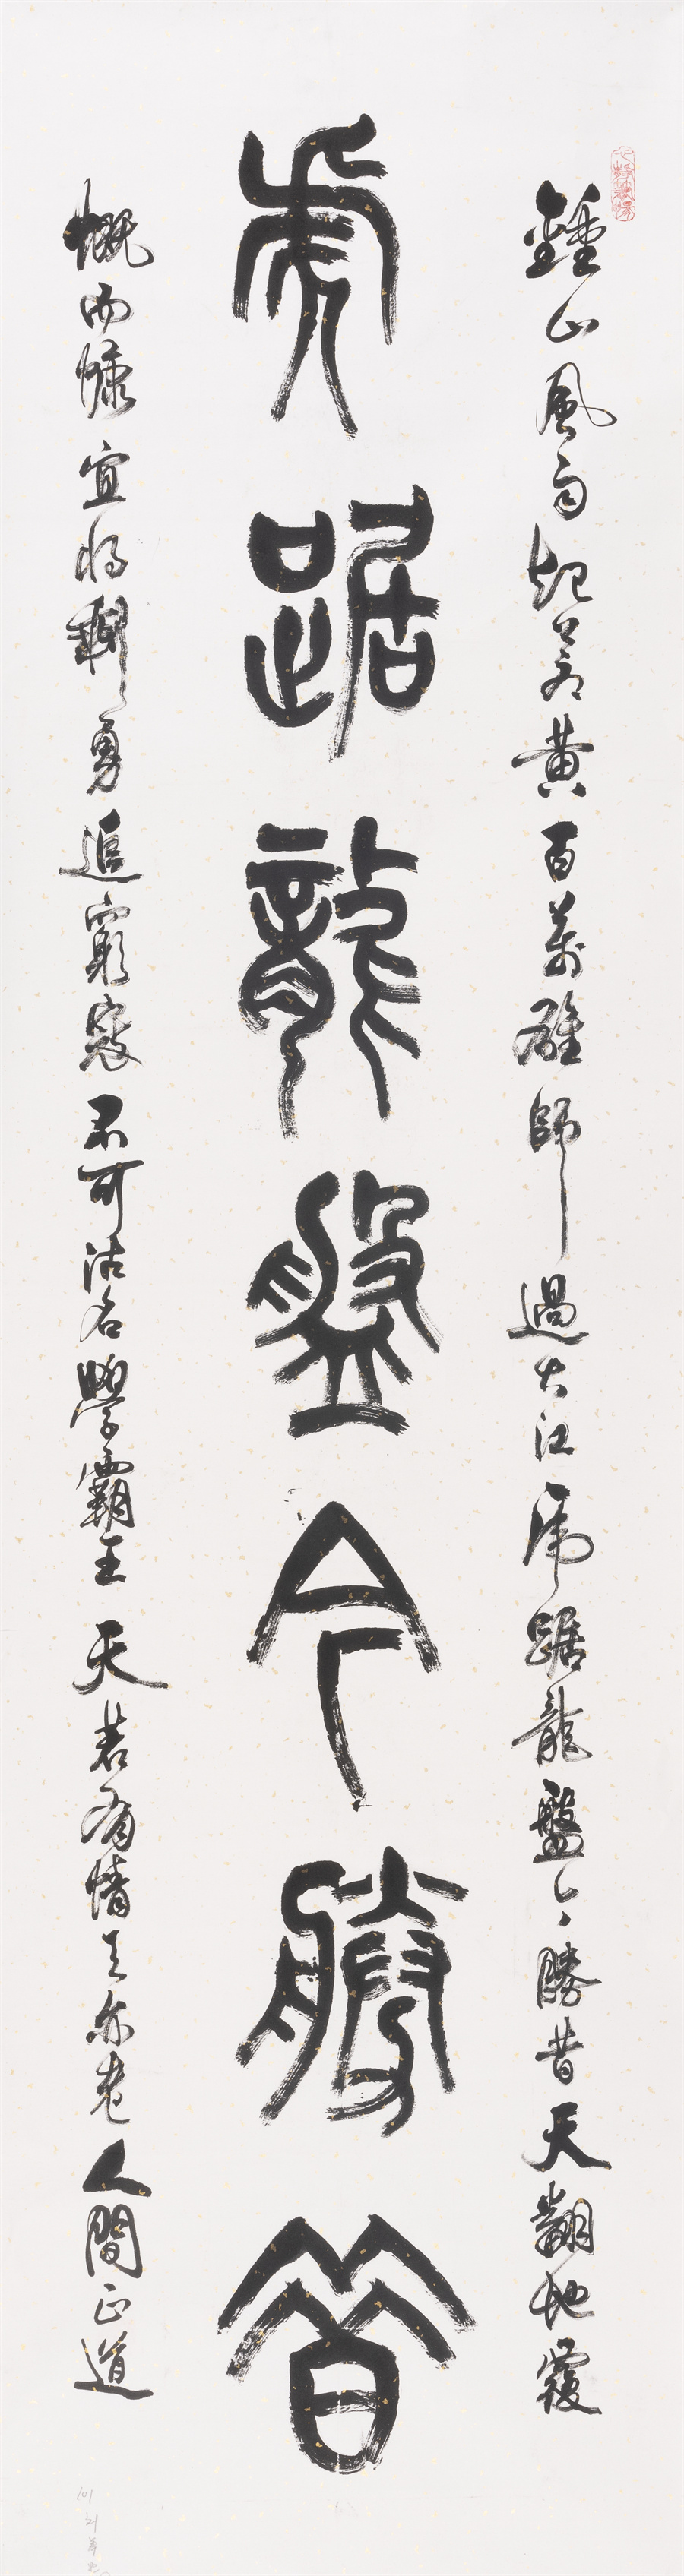 鍾山風雨起蒼黃百萬雄師過大江虎踞龍盤今勝昔天翻地覆
虎踞龍盤今勝昔
慨而慷宜將剩勇追窮寇不可沽名學霸王天若有情天亦老人間正道